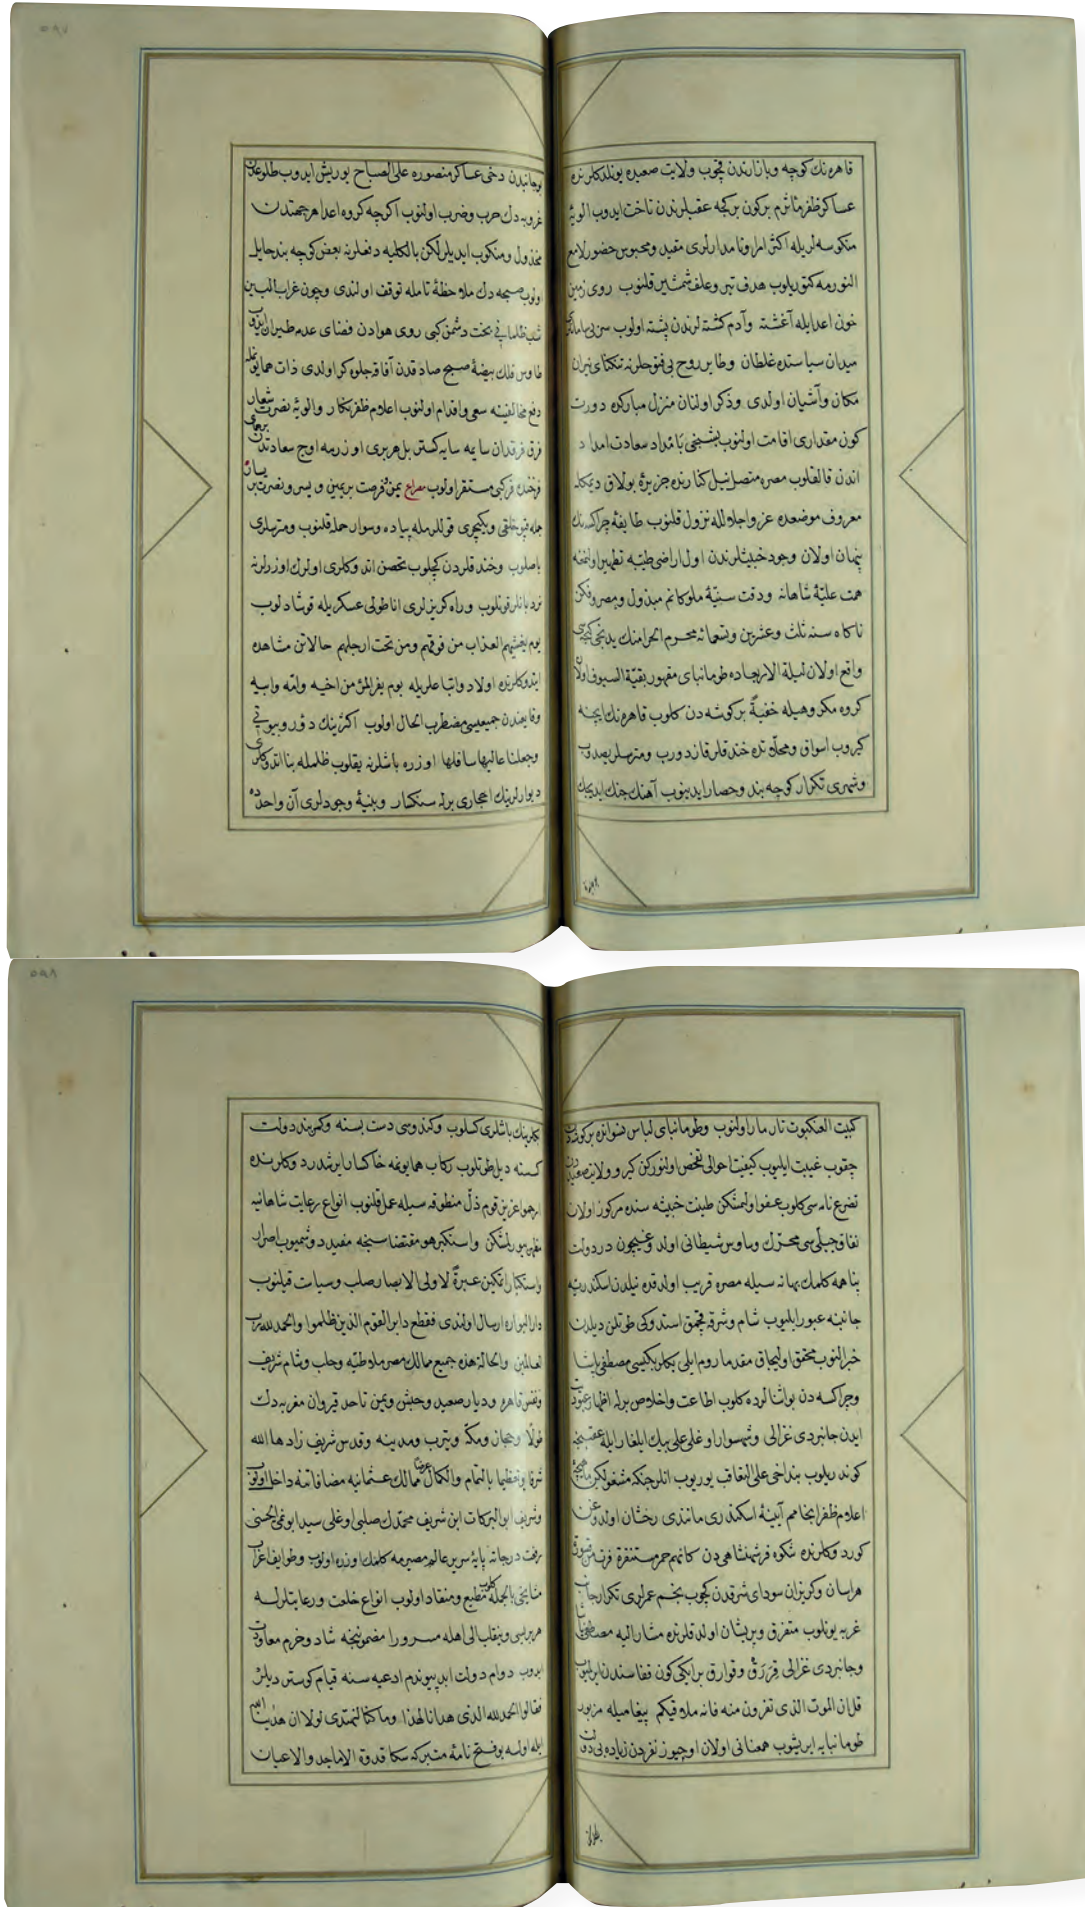 ٥٩٧
قاهره‌نك كوچه و بازارندن قچوب ولايت صعيده يوندلكلرنده
عساكر ظفرمآثرم بركون بركيجه عقبلرندن تاخت ايدوب الويهٔ
منكوسه لريله اكثر امرا ونامدارلرى مقيد ومحبوس حضور لامع
النورمه كتوريلوب هدف تير وعلف شمشير قلنوب روى زمين
خون اعدا يله آغشته وآدم كشته لرندن پشته اولوب سر بى سامانلرى
ميدان سياستده غلطان وطاير روح بى فتوحلرنه تنكناى نيران
مكان وآشيان اولدى وذكر اولنان منزل مباركده دورت
كون مقدارى اقامت اولنوب بشنجى بامداد سعادت امداد
اندن قالقلوب مصره متصل نيل كنارنده جزيرهٔ بولاق ديمكله
معروف موضعده عز واجلالله نزول قلنوب طايفهٔ چراكسه‌نك
پنهان اولان وجود خبيثلرندن اول اراضى طيبه تطهير اولنمغه
همت عليهٔ شاهانه ودقت سنيهٔ ملوكانم مبذول ومصروفكن
ناكاه سنه ثلث وعشرين وتسعمائه محرم الحرامنك يدنجى كيجه‌سى
واقع اولان ليلة الاربعاده طومانباى مقهور بقية السيوف اولان
كروه مكروهيله خفيةً بر كوشه دن كلوب قاهره‌نك ايچنه
كيروب اسواق ومحلاتده خندقلر قازدورب ومترسلر يصدروب
وشهرى تكرار كوچه بند وحصار ايدينوب آهنك جنك ايديجك
بوجانبدن دخى عساكر منصوره على الصباح يوريش ايدوب طلوعدن
غروبه دك حرب وضرب اولنوب اكرچه كروه اعدا هر جهتدن
مخذول ومنكوب ايديلر لكن بالكليه دفعلرينه بعض كوچه بند حايل
اولوب صبحه دك ملاحظهٔ تامله توقف اولندى وچون غراب البين
شب ظلمانى بخت دشمن كبى روى هوادن فضاى عدمه طيران ايدوب
طاوس فلك بيضهٔ صبح صادقدن آفاقه جلوه كر اولدى ذات همايونمله
دفع مخالفينه سعى واقدام اولنوب اعلام ظفرنكار والويهٔ نصرت شعار
فرق فرقدان سايه سايه كستر بل هر برى اوزرمه اوج سعادتدن برهماى
فرخنده فركبى مستقر اولوب مصراع يمن وفرصت بريمين ويسر ونصرت بريسار
جمله قپوخلقى ويكيچرى قوللرمله پياده وسوار حمله قلنوب ومترسلرى
باصلوب وخندقلردن كچلوب تحصن اتدوكلرى اولرك اوزرلرنه
نردبانلر قونلوب وراه كريزلرى اناطولى عسكريله قوشادلوب
يوم يغشيهم العذاب من فوقهم ومن تحت ارجلهم حالاتن مشاهده
ايتدوكلرنده اولاد واتباعلريله يوم يفر المرء من اخيه وامه وابيه
وقايعندن جميعيسى مضطرب الحال اولوب اكثرينك دور وبيوتى
وجعلنا عاليها سافلها اوزره باشلرنه يقلوب ظلمله بنا اتدوكلرى
ديوارلرينك احجارى برله سنكسار وبنيهٔ وجودلرى آن واحدده
٥٩٨
كبيت العنكبوت تار مار اولنوب وطومانباى لباس نسوانده بركوشه دن
چقوب غيبت ايليوب كيفيت احوالى تفحص اولنوركن كيرو ولايت صعيددن
تضرع نامه سى كلوب عفو اولنمشكن طينت خبيثه سنده مركوز اولان
نفاق جبلى سى محرك وساوس شيطانى اولدوغيچون در دولت
پناهمه كلمك بهانه سيله مصره قريب اولدقده نيلدن اسكندريه
جانبنه عبور ايليوب شام وشرقه قچمق استدوكى طوتلن ديلدن
خبر النوب محقق اوليجاق مقدما روم ايلى بكلربكيسى مصطفى پاشا
وچراكسه دن بو اثنالرده كلوب اطاعت واخلاص برله اظهار عبوديت
ايدن جانبردى غزالى وشهسوار اوغلى على بيك ايلغار ايله عقبنجه
كوندريلوب بنداخى على التعاقب يوريوب انلر جنكه مشغولكن ماهيچهٔ
اعلام ظفر انجامم آيينهٔ اسكندرى مانندى رخشان اولدوغن
كوردوكلرنده شكوه فر شهنشاهى دن كانهم حمر مستنفرة فرت من قسورة
هراسان وكريزان سوداى شرقدن كچوب نجم عمرلرى تكرار جانب
غربه يونلوب متفرق وپريشان اولدقلرنده مشار اليه مصطفى پاشا
وجانبردى غزالى قزرق وقوارق بر ايكى كون قفاسندن ايريليوب
قل ان الموت الذى تفرون منه فانه ملاقيكم پيغاميله مزبور
طومانبايه ايريشوب همعنانى اولان اوچيوز نفردن زياده بى دولت
بكلرينك باشلرى كسلوب وكندوسى دست بسته وكمربند دولت
كسسته ديل طوتلوب ركاب همايونمه خاكسار ايرشدردوكلرنده
ارحموا عزيز قوم ذل منطوقه سيله عمل قلنوب انواع رعايت شاهانيه
مظهر بيورلمشكن واستكبر هو مقتضاسنجه مفيد دوشميوب اصرار
واستكبار اتمكين عبرةً لاولى الابصار صلب وسياست قيلنوب
دار البواره ارسال اولندى فقطع دابر القوم الذين ظلموا والحمد لله رب
العالمين والحالة هذه جميع ممالك مصر ملاطيه وحلب وشام شريف
ونفس قاهره وديار صعيد وحبش ويمن تا حد قيروان مغربه دك
قولا وحجاز ومكه ويثرب ومدينه وقدس شريف زادها الله
شرفا وتعظيما بالتمام والكمال عرصهٔ ممالك عثمانيه مضافاتنه داخل اولوب
وشريف ابو البركات ابن شريف محمدك صلبى اوغلى سيد ابو نمى الحسنى
رفعت درجاته پايهٔ سرير عالم مصيرمه كلمك اوزره اولوب وطوايف اعراب
مشايخى بالجمله كلوب مطيع ومنقاد اولوب انواع خلعت ورعايتلرله
هر برلرى وينقلب الى اهله مسرورا مضموننجه شاد وخرم معاودت
ايدوب دوام دولت ابد پيوندم ادعيه سنه قيام كوستر ديلر
فقالوا الحمد لله الذى هدانا لهذا وما كنا لنهتدى لولا ان هدينا الله
ايله اولسه بو فتح نامهٔ متبركه سكا قدوة الاماجد والاعيان